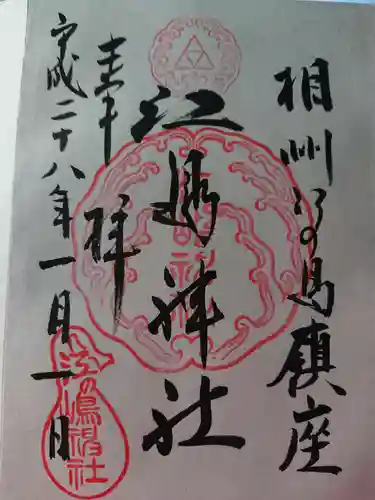 相州江の島鎮座
江島神社
奉拝
平成二十八年一月一日
江嶋神社